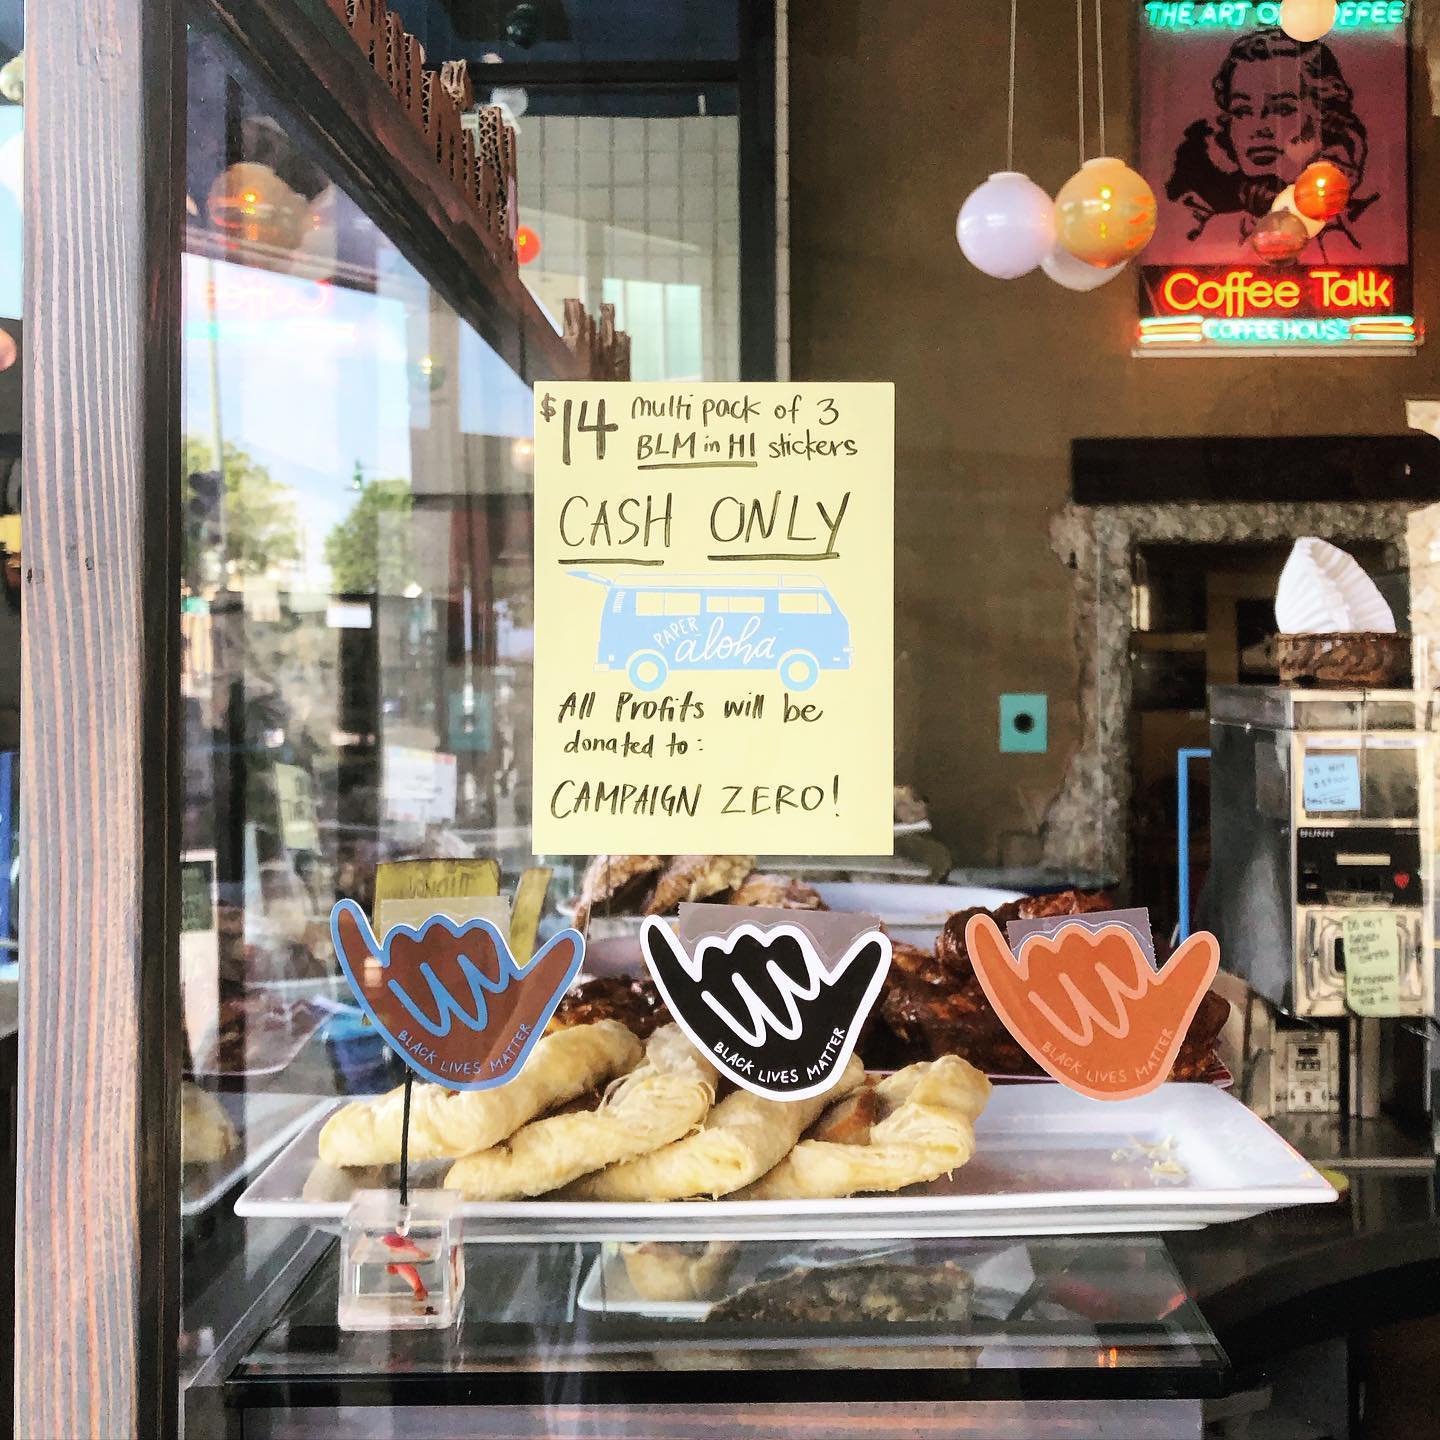 THE ART OF COFFEE
Coffee Talk
COFFEE HOUSE
$14 multi pack of 3
BLM in HI stickers
CASH ONLY
PAPER
aloha
All Profits will be
donated to:
CAMPAIGN ZERO!
BLACK LIVES MATTER
BLACK LIVES MATTER
BLACK LIVES MATTER
BUNN